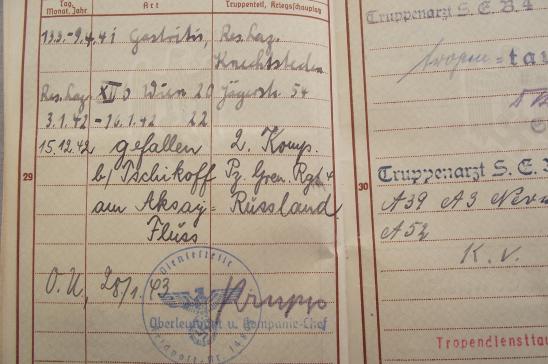 Tag, Monat, Jahr Art Truppenteil, Kriegsschauplatz
13.3.-9.4.41 Gastritis, Res. Laz.
Knechtsteden
Res. Laz. XI Wien 20 Jägerstr. 54
3.1.42 - 16.1.42 22
15.12.42 gefallen 2. Komp.
b/ Tschikoff Pz. Gren. Rgt 4
am Aksay- Russland
Fluss
29
O.U, 20/1.43 Krupp
Dienststelle
Oberleutnant u. Kompanie-Chef
Truppenarzt S. E. B. 4
tropen = tau
30
Truppenarzt S. E. B
A39 A3
A52
K. V.
Tropendiensttau